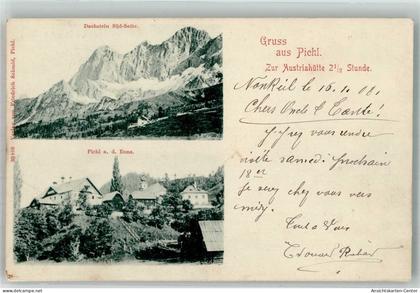 Dachstein Süd-Seite.
Gruss
aus Pichl.
Zur Austriahütte 2½ Stunde.
Verlag von Friedrich Schmid, Pichl.
le 16.1.00.
Chers Oncle & Tante!
vous rendre
visite samedi prochain
18er
Je serai chez vous vers
midi.
Tout à Vous
Edouard
Pichl a. d. Enns.
www.Ansichtskarten-Center.de